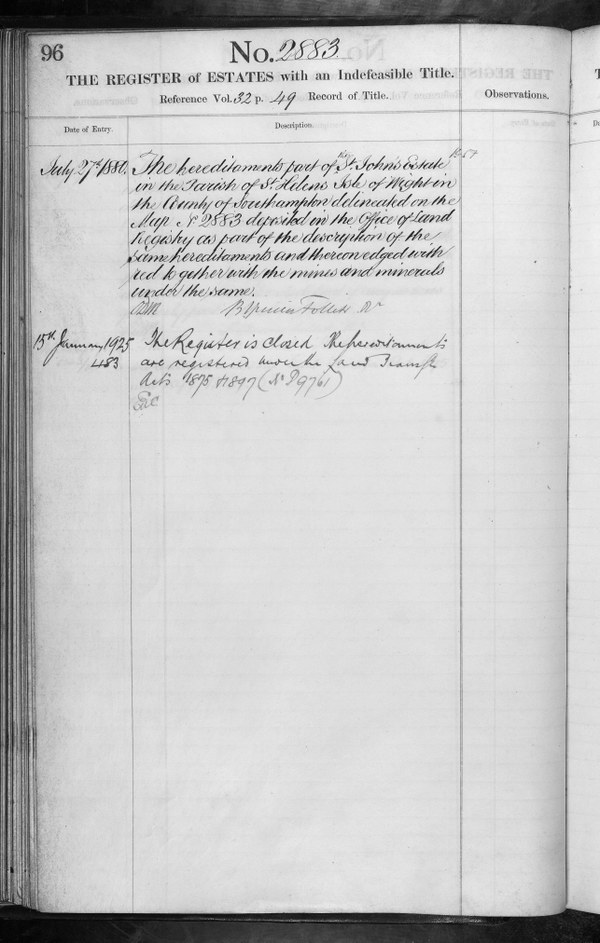 96
No. 2883.
THE REGISTER of ESTATES with an Indefeasible Title.
Reference Vol. 32 p. 49 Record of Title.
Observations.
Date of Entry.
Description.
July 27th 1880.
The hereditaments part of the St. John's Estate
in the Parish of St. Helens Isle of Wight in
the County of Southampton delineated on the
Map No 2883 deposited in the Office of Land
Registry as part of the description of the
same hereditaments and thereon edged with
red together with the mines and minerals
under the same.
B Spencer Follett Rr
15th January 1925
483
The Register is closed The hereditaments
are registered under the Land Transfer
Acts 1875 & 1897 (No P9761)